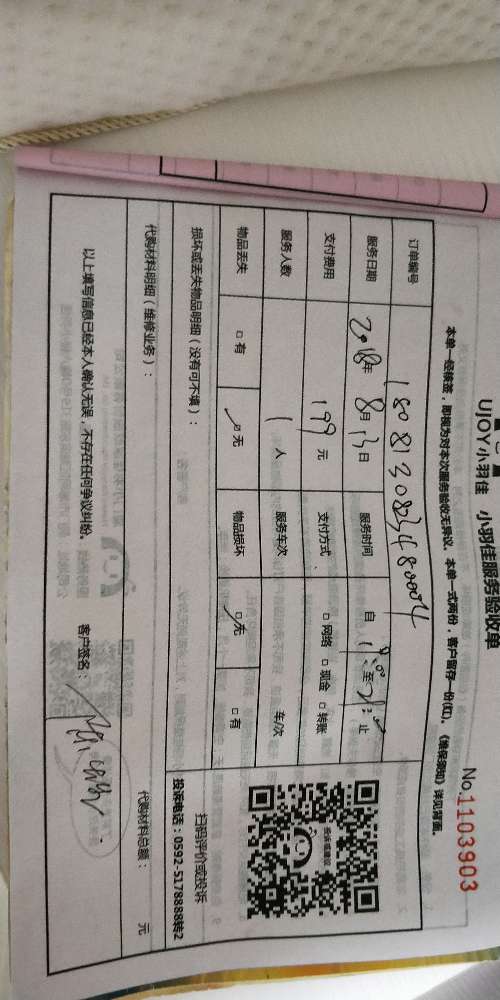 UJOY小羽佳 小羽佳服务验收单
No.1103903
本单一经核签，即视为对本次服务验收无异议。本单一式两份，客户留存一份(红)。《维保须知》详见背面。
订单编号
服务日期 2018年 8月13日 服务时间 自 至 止
支付费用 199 元 支付方式 □网络 □现金 □转账
服务人数 1 人 服务车次 车/次
物品丢失 □有 □无 物品损坏 □无 □有
损坏或丢失物品明细（没有可不填）：
扫码评价或投诉
投诉电话：0592-5178888转2
代购材料明细（维修业务）：
代购材料总额： 元
以上填写信息已经本人确认无误，不存在任何争议纠纷。 客户签名：